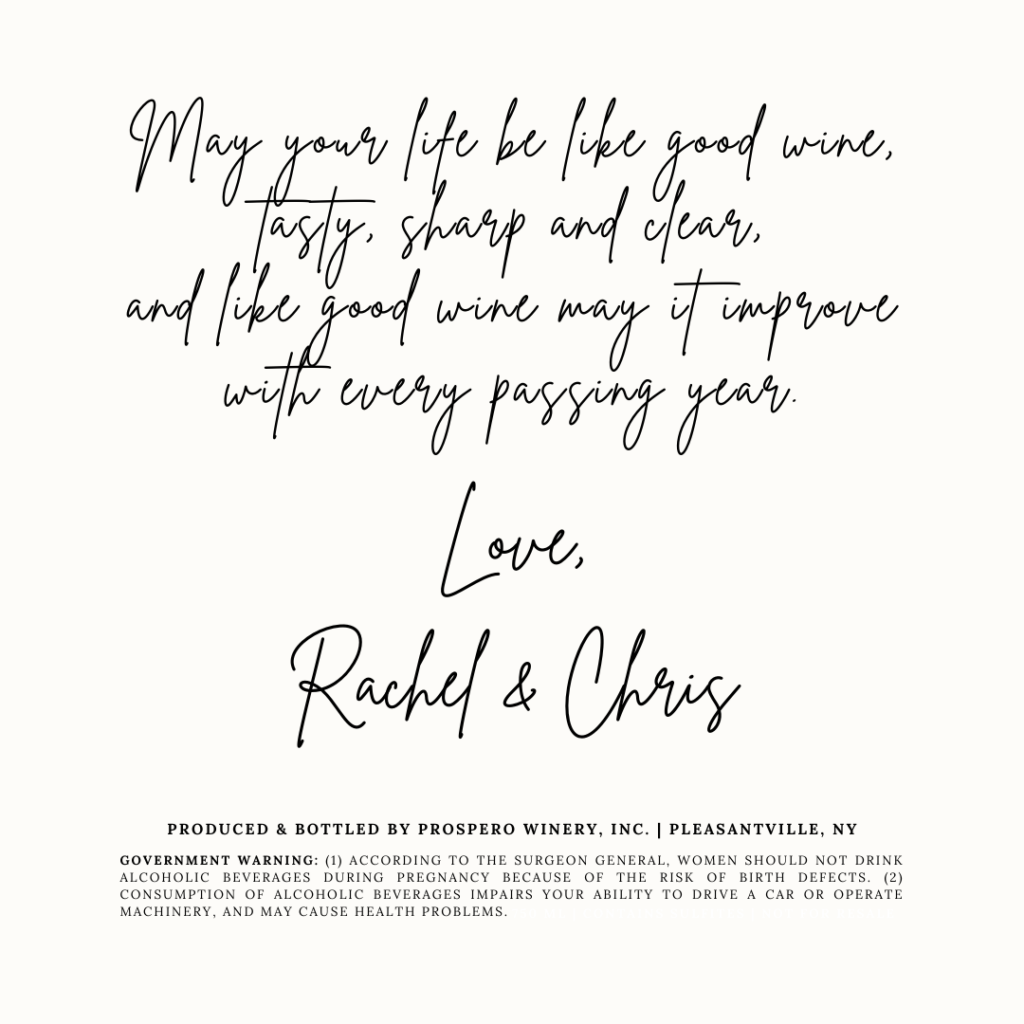 May your life be like good wine,
tasty, sharp and clear,
and like good wine may it improve
with every passing year.
Love,
Rachel & Chris
PRODUCED & BOTTLED BY PROSPERO WINERY, INC. | PLEASANTVILLE, NY
GOVERNMENT WARNING: (1) ACCORDING TO THE SURGEON GENERAL, WOMEN SHOULD NOT DRINK
ALCOHOLIC BEVERAGES DURING PREGNANCY BECAUSE OF THE RISK OF BIRTH DEFECTS. (2)
CONSUMPTION OF ALCOHOLIC BEVERAGES IMPAIRS YOUR ABILITY TO DRIVE A CAR OR OPERATE
MACHINERY, AND MAY CAUSE HEALTH PROBLEMS.